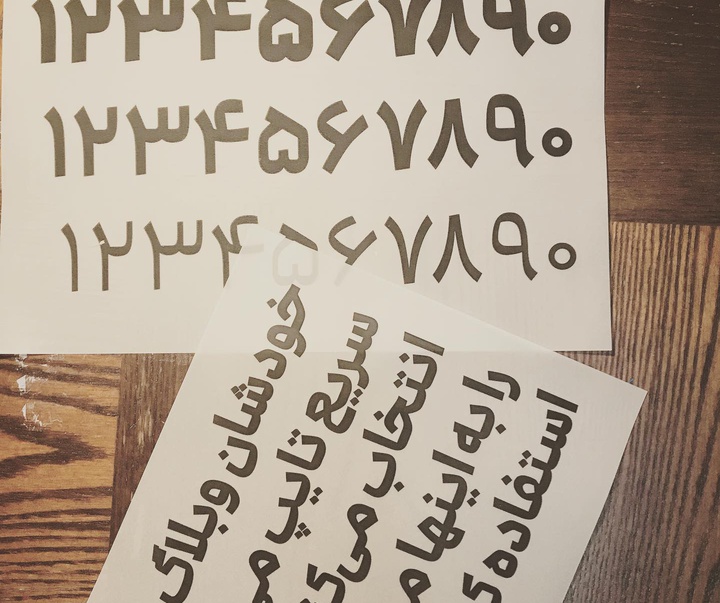 ۱۲۳۴۵۶۷۸۹۰
۱۲۳۴۵۶۷۸۹۰
۱۲۳۴۵۶۷۸۹۰
خودشان وبلاگ
سریع تایپ
انتخاب می
را به اینها
استفاده